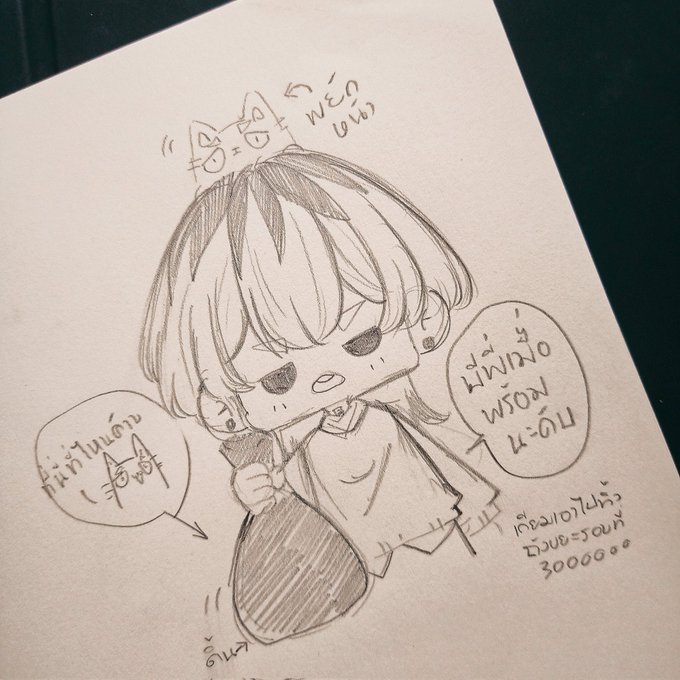 พยัก
หน้า
พี่พี่เมื่อ
พร้อม
นะคับ
ที่นี่ที่ไหนค้าบ
เตรียมเอาไปทิ้ง
ถังขยะรอบที่
3000000
ดิ้น